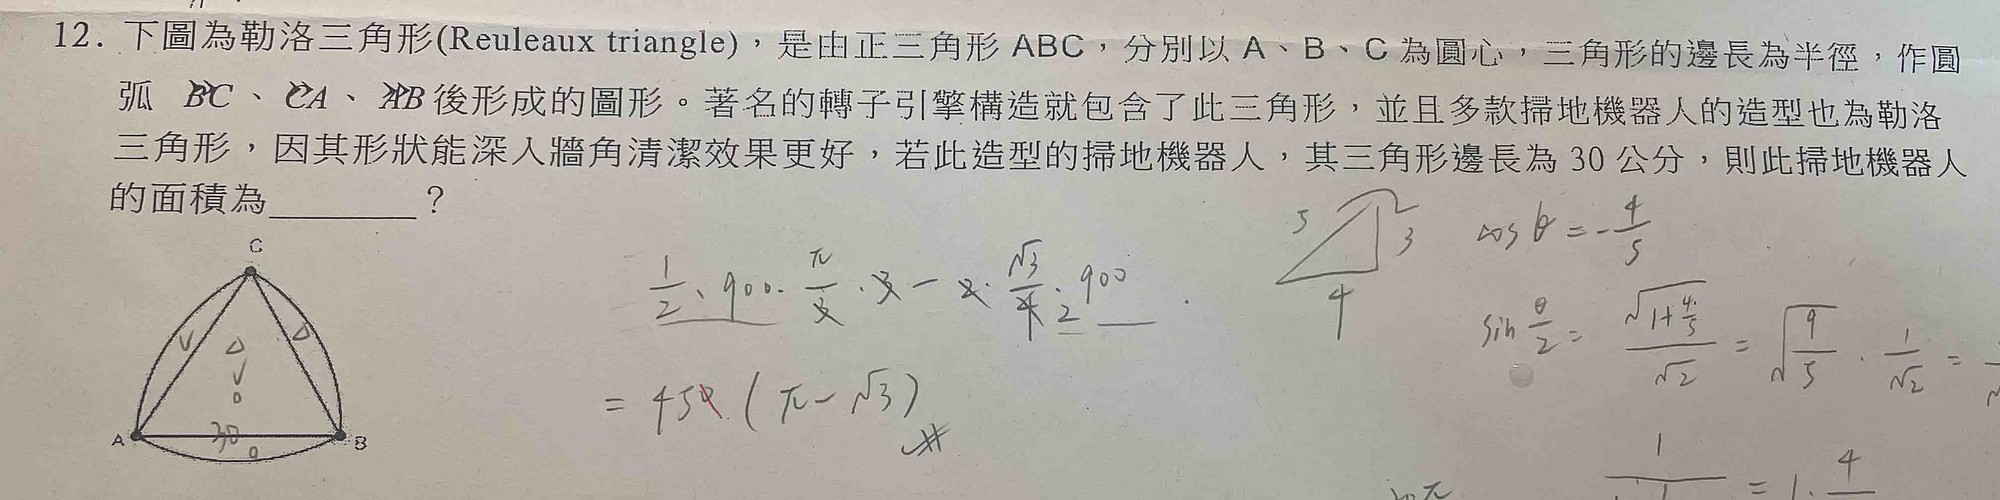 12. 下圖為勒洛三角形(Reuleaux triangle)，是由正三角形 ABC，分別以 A、B、C 為圓心，三角形的邊長為半徑，作圓
弧 BC、CA、AB後形成的圖形。著名的轉子引擎構造就包含了此三角形，並且多款掃地機器人的造型也為勒洛
三角形，因其形狀能深入牆角清潔效果更好，若此造型的掃地機器人，其三角形邊長為 30 公分，則此掃地機器人
的面積為________？
C
A
B
30
1/2 · 900 · π/3 · 3 − 2 · √3/4 · 900
= 450 (π − √3)
5
3
4
cos θ = − 4/5
sin θ/2 = √(1+4/5) / √2 = √(9/5) · 1/√2 =
= 1 · 4